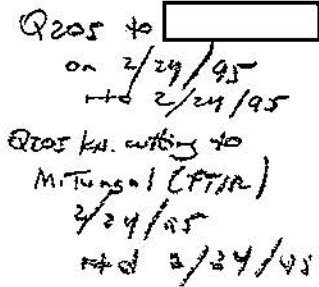 Q205 to
on 2/24/95
rtd 2/24/95
Q205 kn. cutting to
M. Tungol (FTIR)
2/24/95
rtd 2/24/95